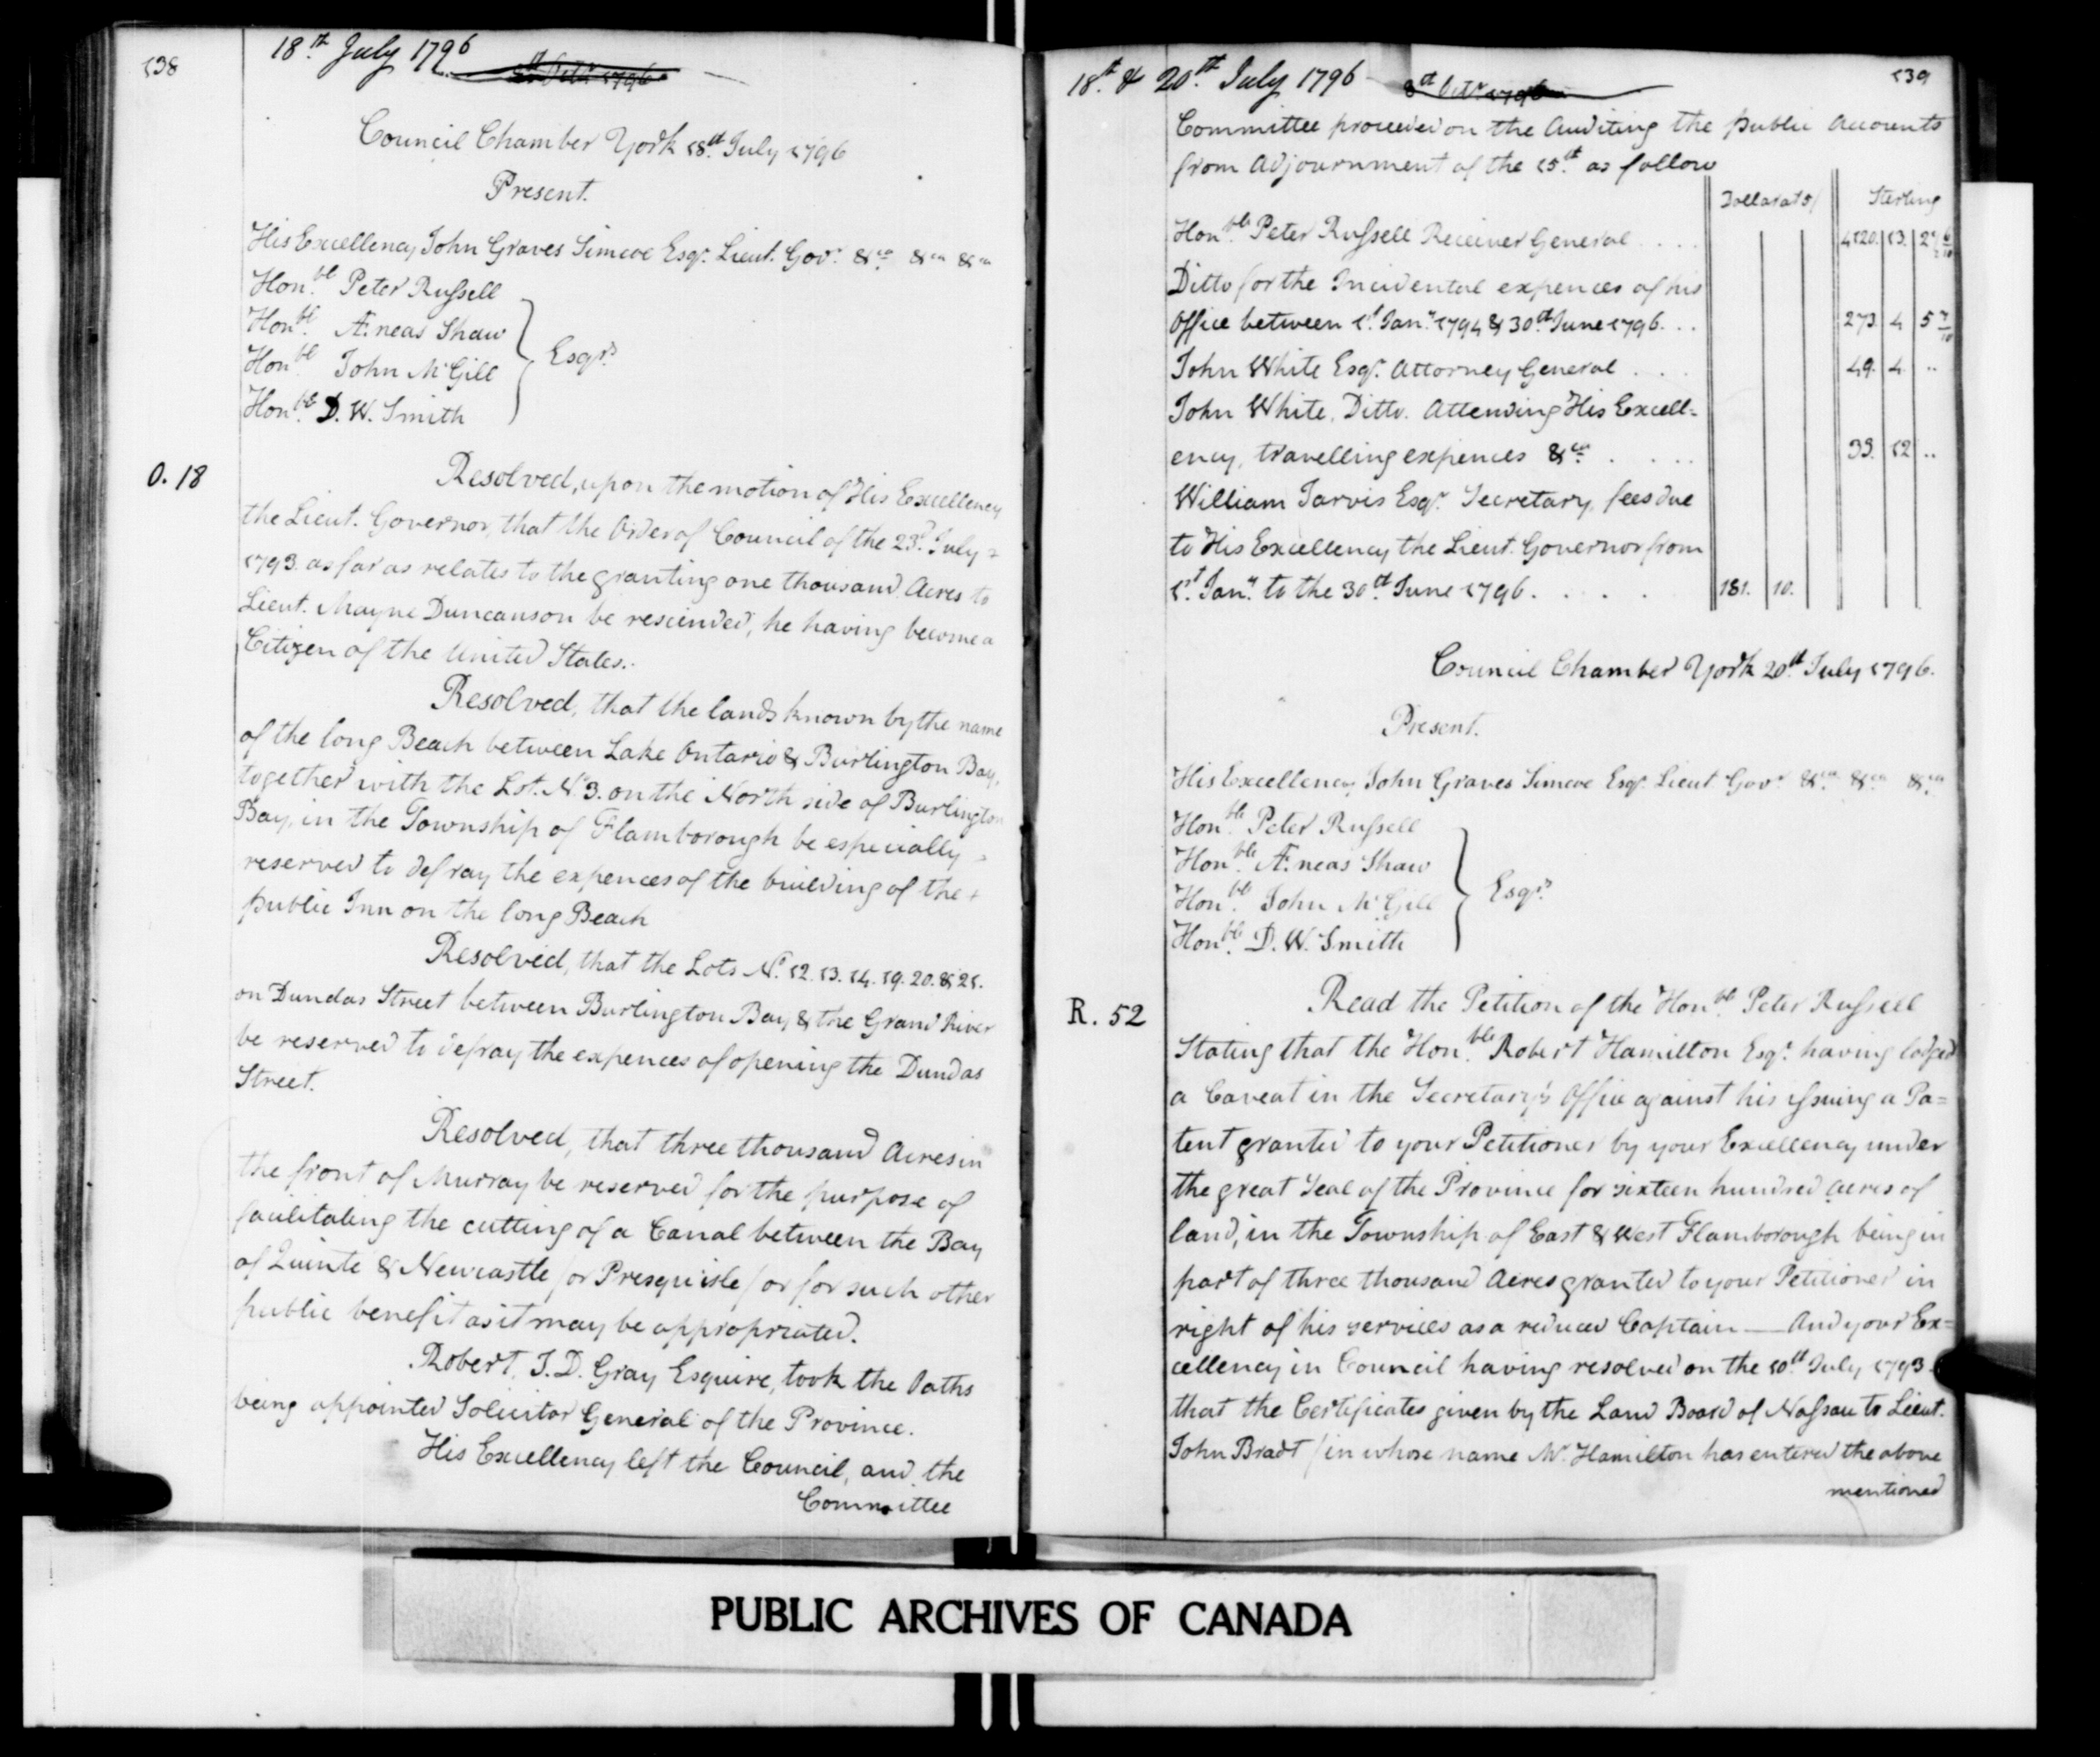 138
18th July 1796
Council Chamber York 18th July 1796
Present.
His Excellency John Graves Simcoe Esqr. Lieut. Govr. &ca &ca &ca
Honbl. Peter Russell
Honbl. Æneas Shaw
Honbl. John McGill
Honble. D. W. Smith
Esqrs
O. 18
Resolved, upon the motion of His Excellency
the Lieut. Governor, that the Order of Council of the 23d July
1793. as far as relates to the granting one thousand Acres to
Lieut. Mayne Duncanson be rescinded, he having become a
Citizen of the United States.
Resolved, that the lands known by the name
of the long Beach between Lake Ontario & Burlington Bay,
together with the Lot. No 3. on the North side of Burlington
Bay, in the Township of Flamborough be especially
reserved to defray the expences of the building of the
public Inn on the long Beach
Resolved, that the Lots No. 12. 13. 14. 19. 20. & 21.
on Dundas Street between Burlington Bay & the Grand River
be reserved to defray the expences of opening the Dundas
Street.
Resolved, that three thousand Acres in
the front of Murray be reserved for the purpose of
facilitating the cutting of a Canal between the Bay
of Quinte & Newcastle /or Presqu'isle/ or for such other
public benefit as it may be appropriated.
Robert. I. D. Gray Esquire, took the Oaths
being appointed Solicitor General of the Province.
His Excellency left the Council, and the
Committee
18th. & 20th. July 1796
8th Octr. 1796
139
Committee proceeded on the Auditing the public Accounts
from Adjournment of the 15th. as follow
Dollars at 5/
Sterling
Honble. Peter Russell Receiver General . . . . 13.
Ditto for the Incidental expences of his
Office between 1st. Jany. 1794 & 30th June 1796. . . 273. 4 5 7/10
John White Esqr. Attorney General . . . 49. 4 ..
John White, Ditto. Attending His Excell=
ency, travelling expences &ca. . . . . 33. 12 ..
William Jarvis Esqr. Secretary, fees due
to His Excellency the Lieut. Governor from
1st. Jany. to the 30th. June 1796. . . . . 181. 10.
Council Chamber York 20th July 1796.
Present.
His Excellency John Graves Simcoe Esqr. Lieut Govr &ca. &ca &ca
Honble. Peter Russell
Honble. Æneas Shaw
Honble. John McGill
Honble. D. W. Smith
Esqrs
R. 52
Read the Petition of the Honbl. Peter Russell
Stating that the Honble. Robert Hamilton Esqr. having lodged
a Caveat in the Secretary's Office against his issuing a Pa=
tent granted to your Petitioner by your Excellency under
the great Seal of the Province for sixteen hundred acres of
land, in the Township of East & West Flamborough being in
part of three thousand Acres granted to your Petitioner in
right of his services as a reduced Captain — And your Ex=
cellency in Council having resolved on the 10th July 1793.
that the Certificates given by the Land Board of Nassau to Lieut.
John Bradt /in whose name Mr. Hamilton has entered the above
mentioned
PUBLIC ARCHIVES OF CANADA